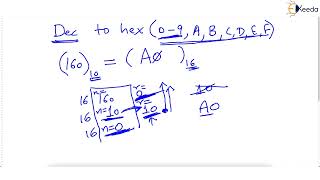 Keeda
Dec to hex (0-9, A, B, C, D, E, F)
(160)₁₀ = (A0)₁₆
16 n=160 r=0 10
16 n=10 r=10 A0
16 n=0